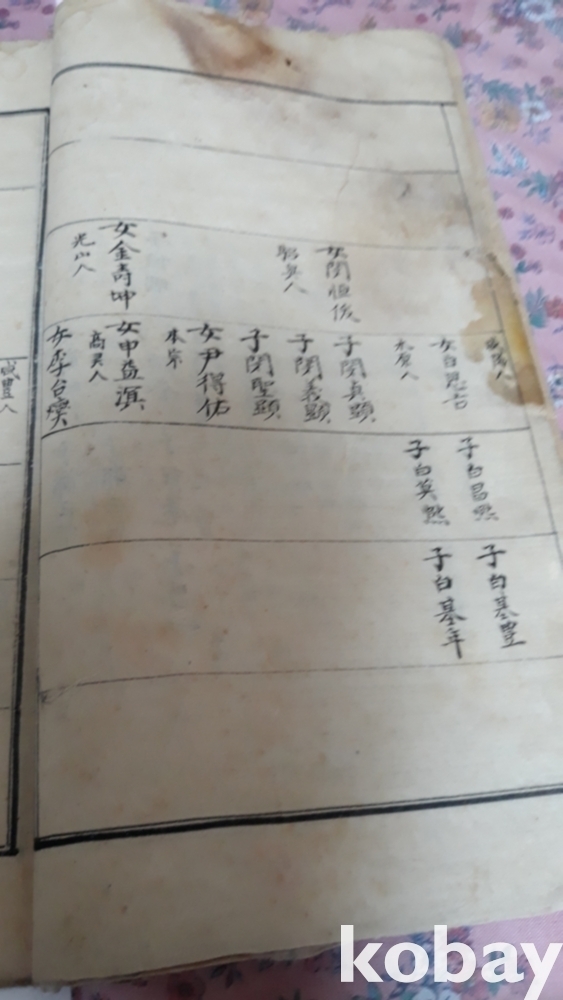 女閔恒俊
驪興人
女金壽坤
光山人
女白思吉
水原人
子閔眞顯
子閔義顯
子閔聖顯
女尹得佑
本宗
女申益濵
高灵人
女李台
子白昌
子白英然
子白基豊
子白基年
咸豊人
kobay